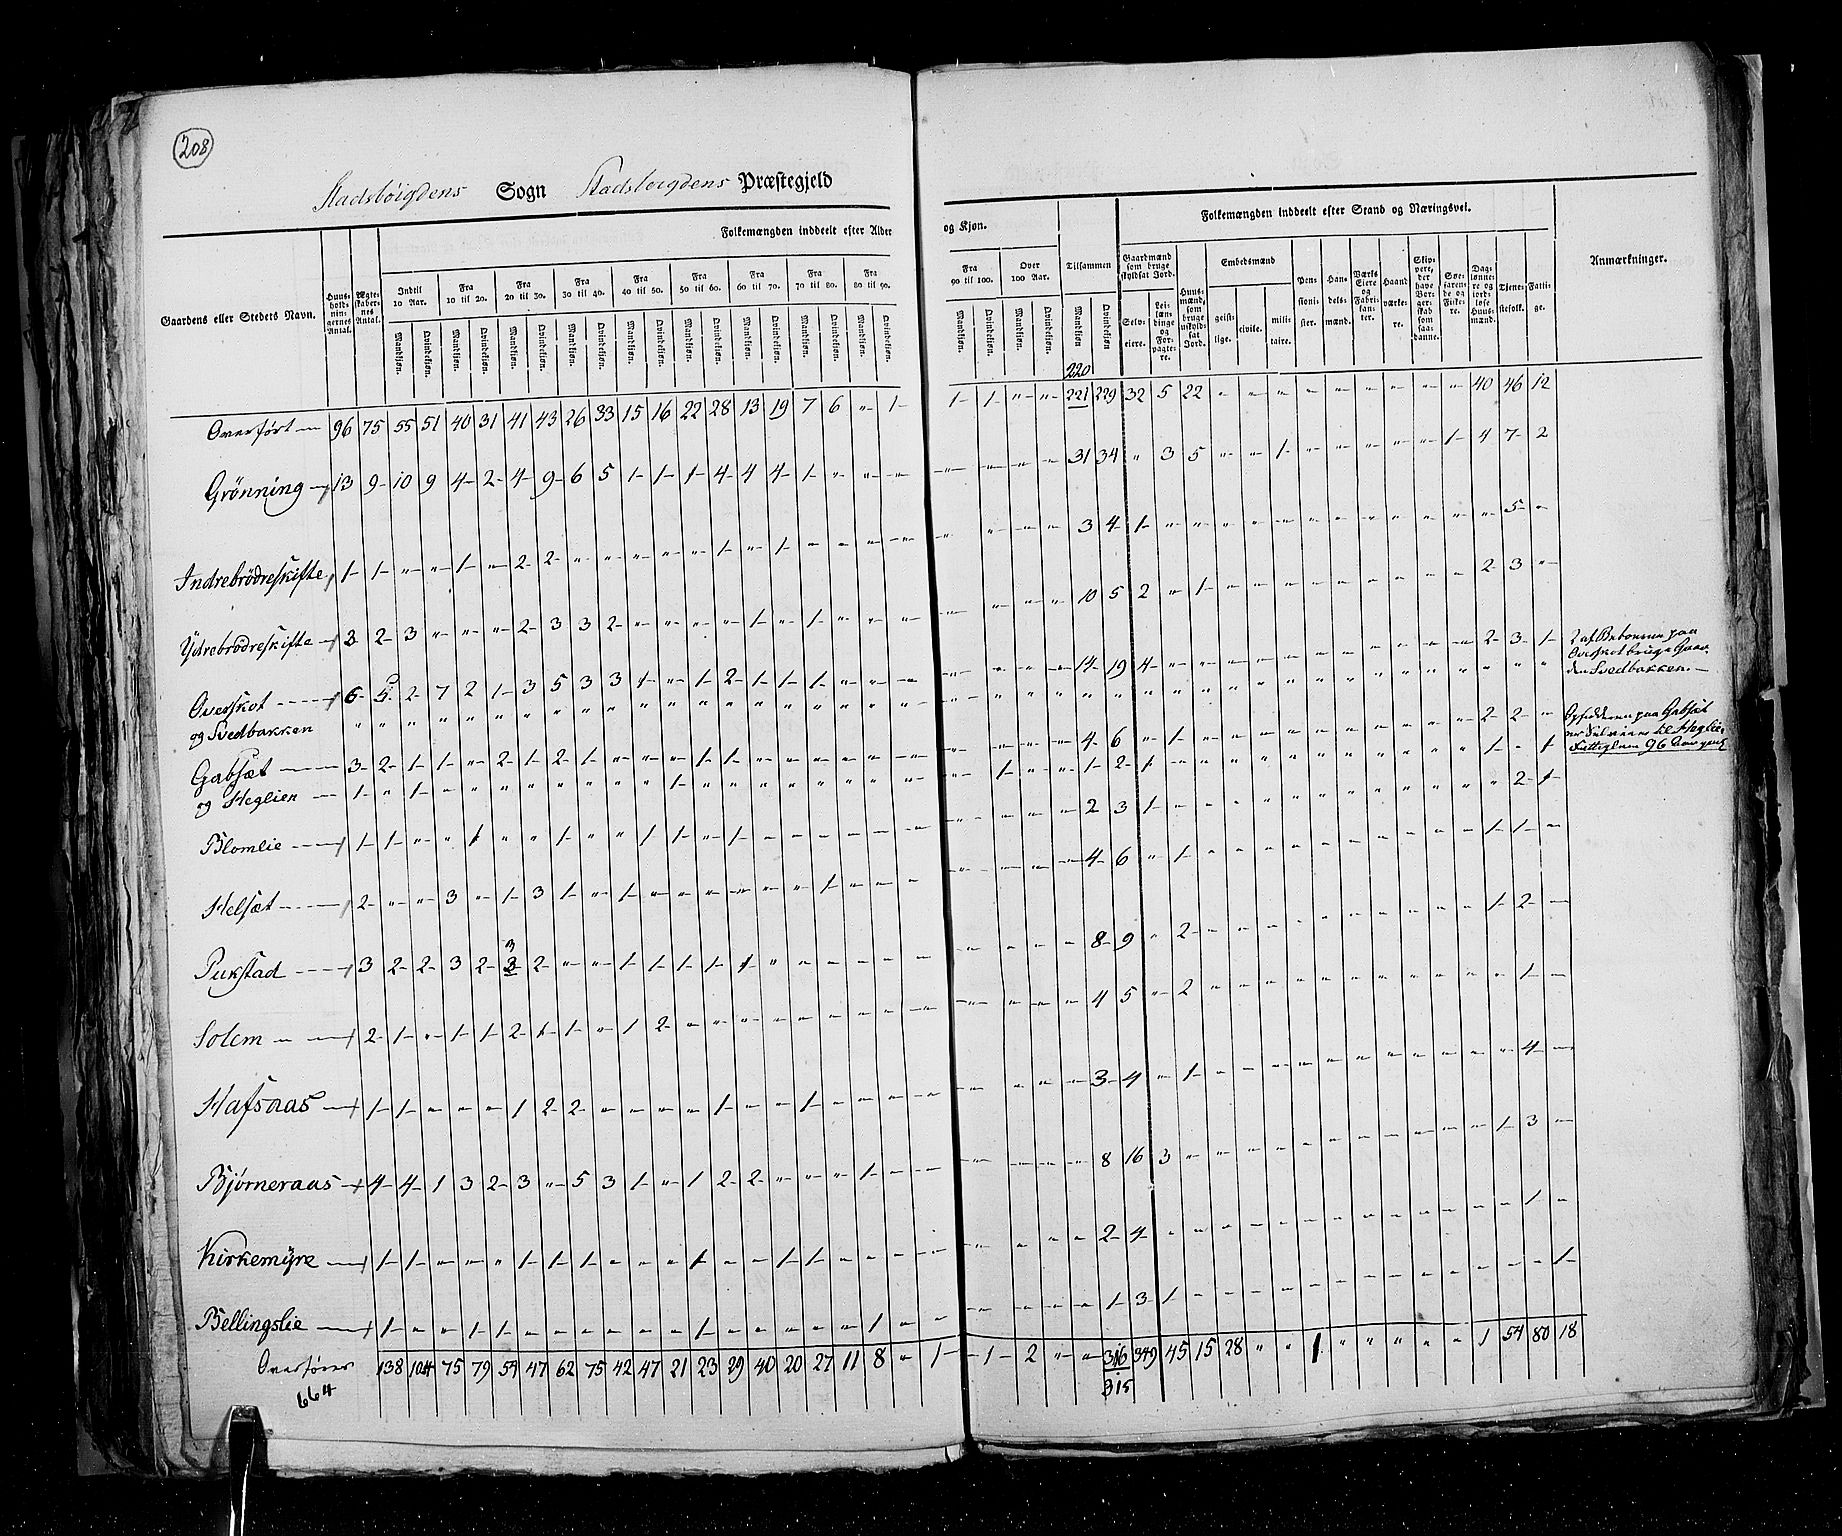 208
Stadsbøigdens Sogn Stadsboigdens Præstegjeld
Gaardens eller Stedets Navn.
Huusholdningernes Antal.
Ægteskabernes Antal.
Folkemængden inddeelt efter Alder og Kjøn.
Indtil 10 Aar. Fra 10 til 20. Fra 20 til 30. Fra 30 til 40. Fra 40 til 50. Fra 50 til 60. Fra 60 til 70. Fra 70 til 80. Fra 80 til 90. Fra 90 til 100. Over 100 Aar. Tilsammen
Mandkjøn. Qvindekjøn.
Folkemængden inddeelt efter Stand og Næringsvei.
Gaardmænd som bruge skyldsat Jord.
Selveiere. Leilændinge og Forpagtere.
Huusmænd, som bruge uskyldsat Jord.
Embedsmænd
geistlige. civile. militaire.
Pensionister. Handelsmænd. Værkseiere og Fabrikanter. Haandværkere. Skippere, der have Borgerskab som saadanne. Søefarende og Fiskere. Dagslønnere og jordløse Huusmænd. Tjenestefolk. Fattige.
Anmærkninger.
220
Overført 96 75 55 51 40 31 41 43 26 33 15 16 22 28 13 19 7 6 " 1 1 1 " " 221 229 32 5 22 " " " " " " " " " 40 46 12
Grönning 13 9 10 9 4 2 4 9 6 5 1 1 1 4 4 4 1 " " " " " " " 31 34 " 3 5 " " 1 " " " " " 1 4 7 2
Indrebrödreskifte 1 1 " " 1 " 2 2 " " " " " 1 " 1 " " " " " " " " 3 4 1 " " " " " " " " " " " " 5 "
Ydrebrödreskifte 3 2 3 " " " 2 3 3 2 " " " " 1 " 1 " " " " " " " 10 5 2 " 1 " " " " " " " " " 2 3 "
Overskot 6 5 2 7 2 1 3 5 3 3 1 " 1 2 1 1 1 " " " " " " " 14 19 4 " " " " " " " " " " " 2 3 1
og Svedbakken " " " " " "
2 af Beboerne paa
Overskot bruge Gaar
den Svedbakken.
Gabsæt 3 2 1 1 " 2 1 2 1 " " " 1 1 " " " " " " " " " " 4 6 " 1 " " " " " " " " " " 2 2 "
og Heglien 1 " 1 " " " " " " " " 1 " " " " " " " " " 1 " " 1 2 1 " " " " " " " " " " " 1 " 1
Blomlie 1 1 " " 1 " " 1 " " 1 1 " 1 " " " " " " " " 2 3 1 " " " " " " " " " " " " 2 1
Helsæt 2 " " 3 " 1 3 1 " 1 " " " " " " 1 " " " " " " " 4 6 " 1 " " " " " " " " " " 1 1 "
3
Pukstad 3 2 2 3 2 3 2 " " 1 1 1 1 1 " " " " " " " " " " 8 9 " 2 " " " " " " " " " " 1 2 "
Solem 2 1 " 1 1 2 1 1 " 1 2 " " " " " " " " " " " " " 4 5 " 2 " " " " " " " " " " " 1 "
Hafsaas 1 1 " " " 1 2 2 " " " " 1 " " 1 " " " " " " " " 3 4 " 1 " " " " " " " " " " " 4 "
Bjørneraas 4 4 1 3 2 3 " 5 3 1 " 1 2 2 " " " 1 " " " " " " 8 16 3 " " " " " " " " " " " 1 3 "
Kirkemyre 1 1 " " " 1 1 1 " " " 1 " " 1 1 " " " " " " " " 2 4 " " " " " " " " " " " " " 1 "
Bellingslie 1 " " 1 1 " " " " " " 1 " " " " " 1 " " " " " " 1 3 1 " " " " " " " " " " " " " 1
Overfører 138 104 75 79 54 47 62 75 42 47 21 23 29 40 20 27 11 8 " 1 1 2 " " 316 349 45 15 28 " " 1 " " " " " 1 54 80 18
664
315